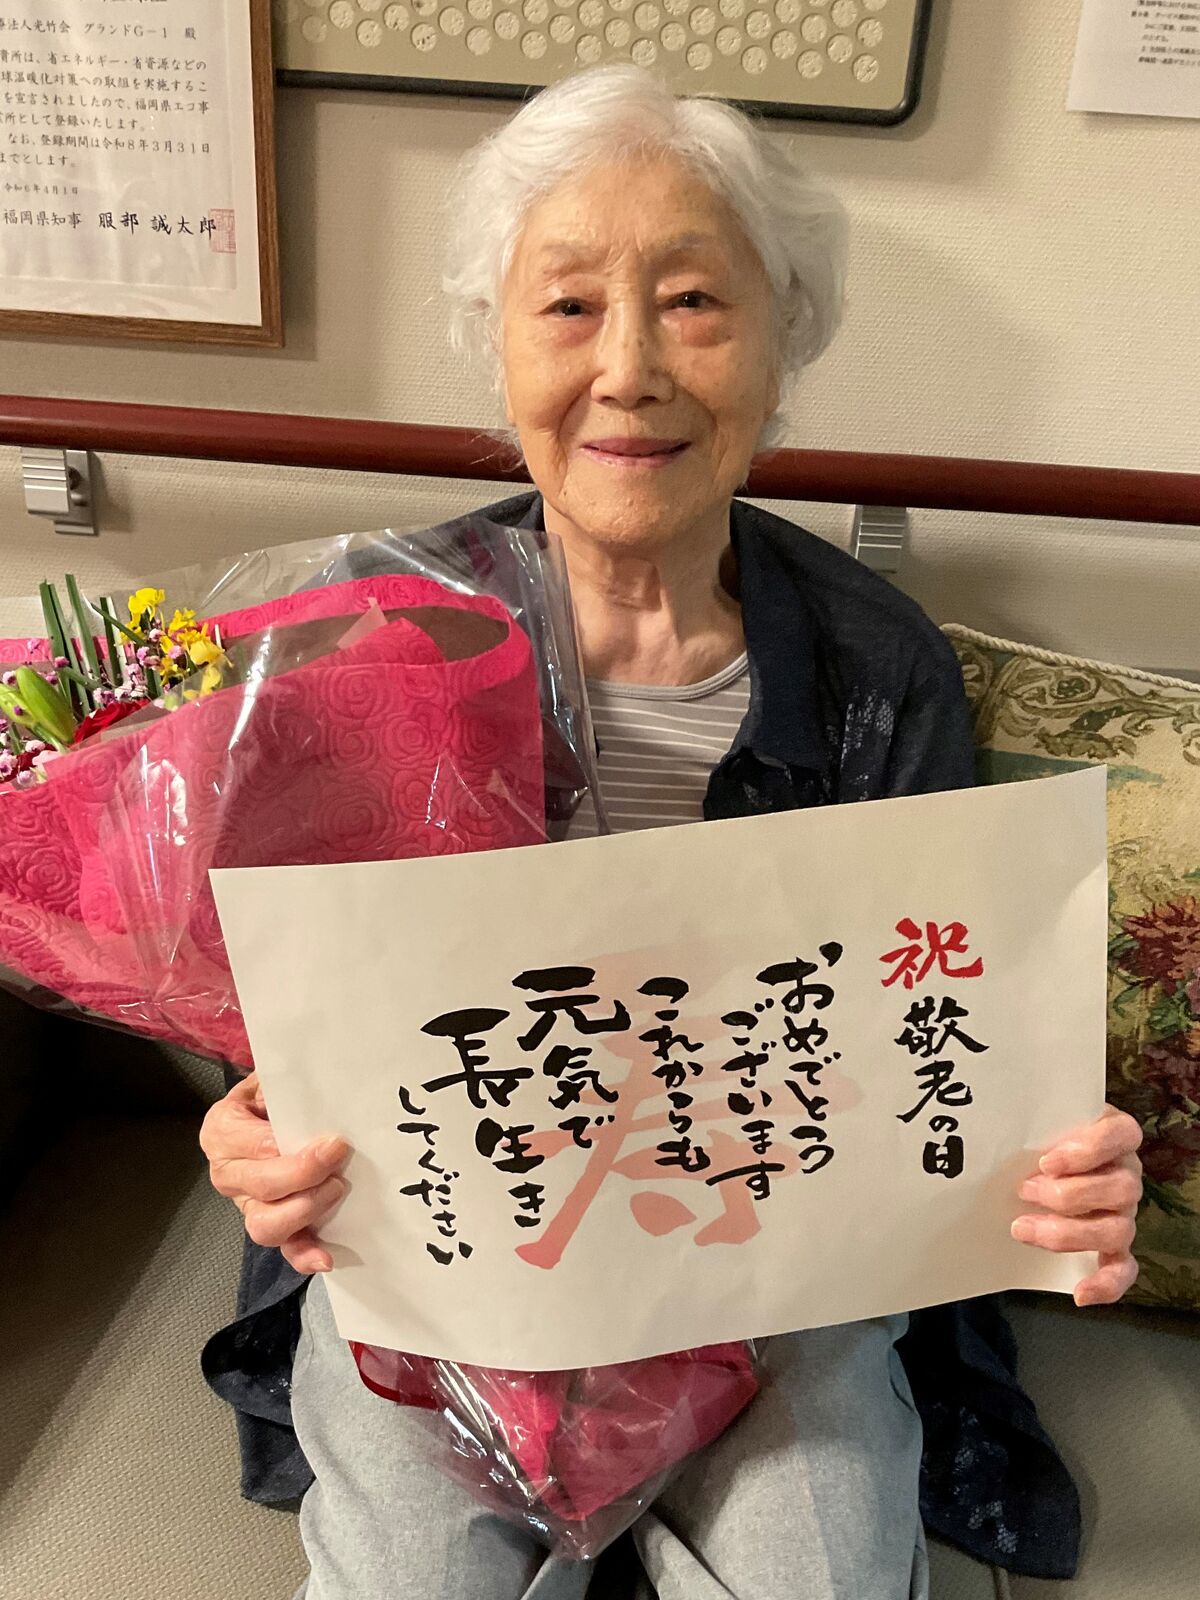 祝 敬老の日
おめでとう
ございます
これからも
元気で
長生き
してください
寿
療法人光竹会 グランドG-1 殿
業所は、省エネルギー・省資源などの
球温暖化対策への取組を実施するこ
を宣言されましたので、福岡県エコ事
業所として登録いたします。
なお、登録期間は令和8年3月31日
までとします。
令和6年4月1日
福岡県知事 服部 誠太郎